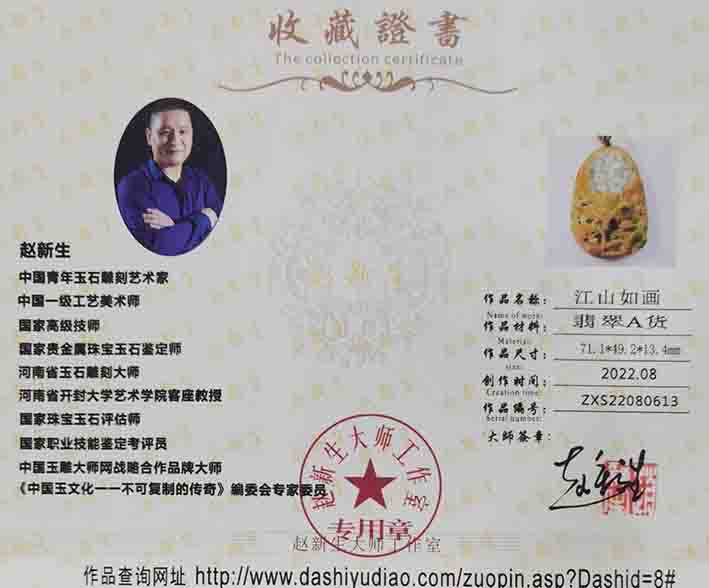 收藏證書
The collection certificate
赵新生
中国青年玉石雕刻艺术家
中国一级工艺美术师
国家高级技师
国家贵金属珠宝玉石鉴定师
河南省玉石雕刻大师
河南省开封大学艺术学院客座教授
国家珠宝玉石评估师
国家职业技能鉴定考评员
中国玉雕大师网战略合作品牌大师
《中国玉文化一一不可复制的传奇》编委会专家委员
作品名称: 江山如画
Name of works:
作品材料: 翡翠A货
Material:
作品尺寸: 71.1*49.2*13.4mm
size:
创作时间: 2022.08
Creation time:
作品编号: ZXS22080613
Serial number:
大師签章:
赵新生
赵新生大师工作室
专用章
赵新生大师工作室
作品查询网址 http://www.dashiyudiao.com/zuopin.asp?Dashid=8#